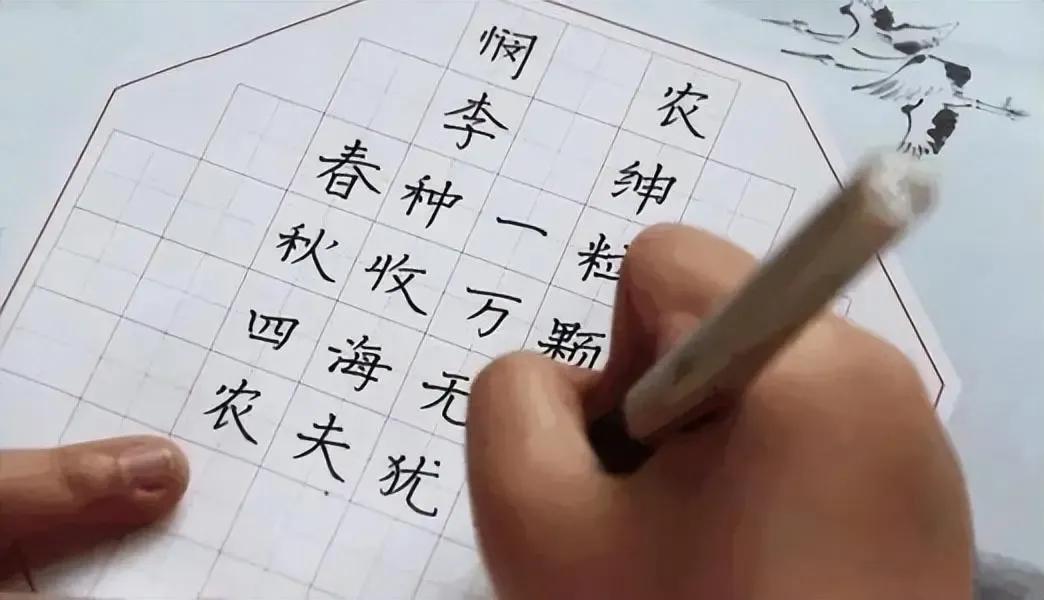 悯农
李绅
春种一粒
秋收万颗
四海无
农夫犹